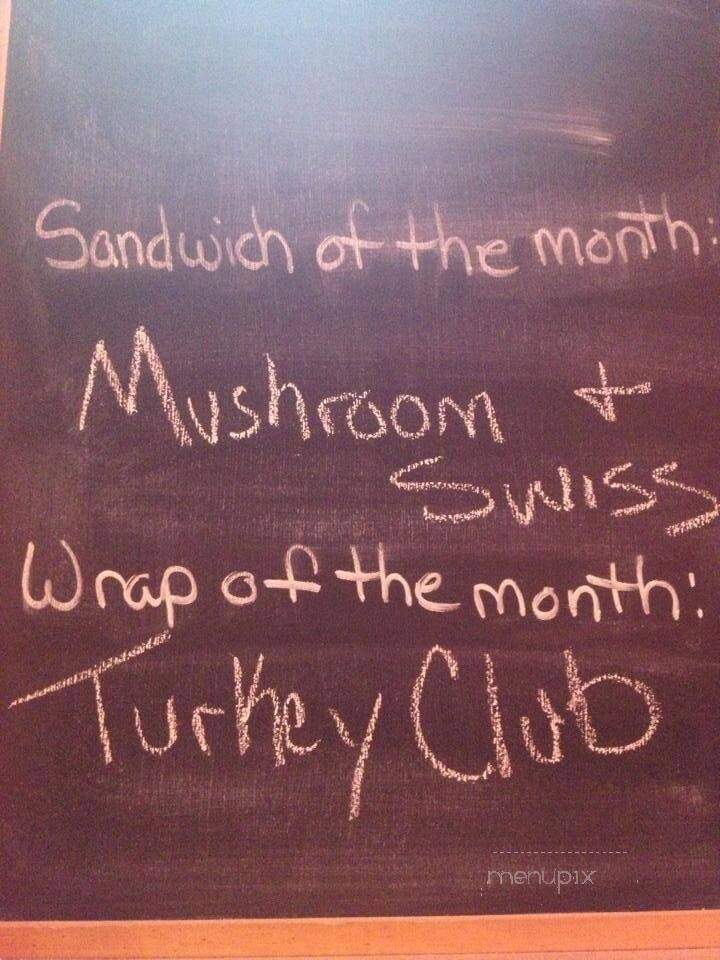 Sandwich of the month:
Mushroom +
Swiss
Wrap of the month:
Turkey Club
menupix